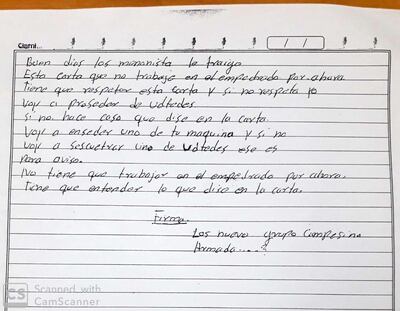 Client...
Buen dias los mononista le traigo
Esta carta que no trabaje en el empedrado por ahora.
Tiene que respetar esta carta y si no respeta yo
Voy a proseder de Udtedes.
si no hace caso que dise en la carta.
Voy a enseder uno de tu maquina y si no
voy a sescuetrar uno de Udtedes ese es
para aviso.
No tiene que trabajar en el empedrado por ahora.
Tiene que entender lo que dice en la carta.
Firma.
Los nuevo grupo campesino
Armada....
CS Scanned with
CamScanner